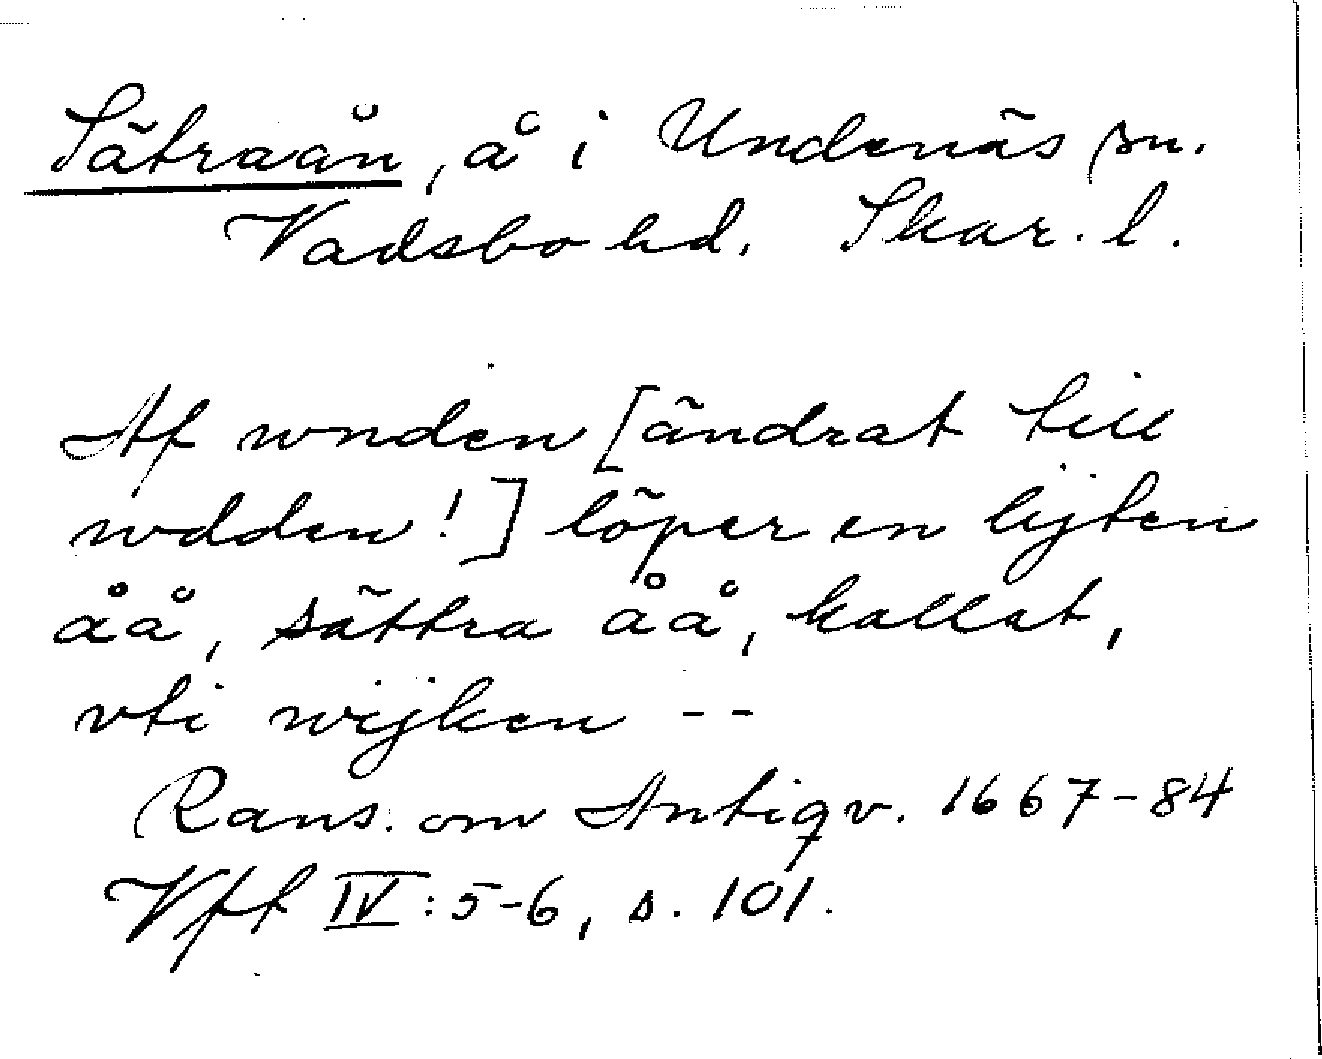 Sätraån, å i Undenäs sn.
Vadsbo hd. Skar. l.
Af wnden [ändrat till
wdden!] löper en lijten
åå, sättra åå, kallat,
vti wijken --
Rans. om Antiqv. 1667-84
Vft IV: 5-6, s. 101.